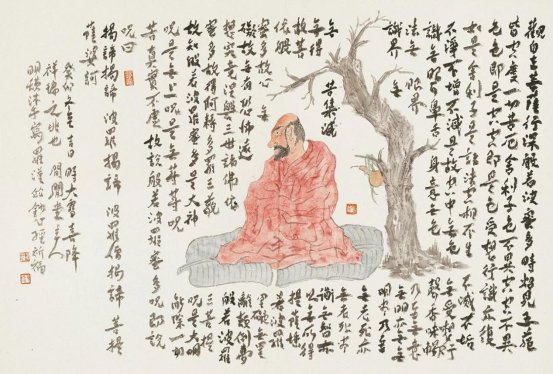 觀自在菩薩行深般若波羅蜜多時照見五蘊
皆空度一切苦厄舍利子色不異空空不異
色色即是空空即是色受想行識亦復
如是舍利子是諸法空相不生
不滅不垢
不淨不增不減是故空中無色
無受想行
識無眼耳鼻舌身意無色
聲香味觸
法無眼界
乃至無意
識界無
無明亦無
無明盡乃至
無老死亦
無老死盡
苦集滅
道無智亦
無得
以無所得
故菩
提薩埵
依般
若波羅
蜜多故心無
罣礙無罣
礙故無有恐怖遠
離顛倒夢
想究竟涅槃三世諸佛依
般若波羅
蜜多故得阿耨多羅三藐
三菩提
故知般若波羅蜜多是大神
咒是大明
咒是無上咒是無等等咒
能除一切
苦真實不虛故說般若波羅蜜多咒即說
咒曰
揭諦揭諦 波羅揭諦 波羅僧揭諦 菩提
薩婆訶
吉日時大雪喜降
祥瑞之兆也 主人
沐手寫羅漢敬錄心經祈福